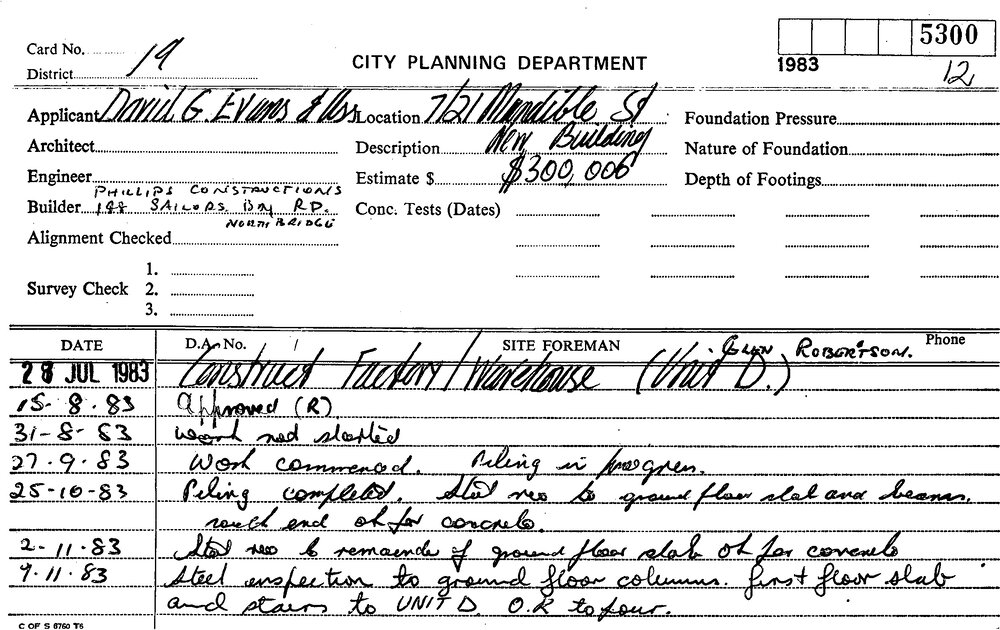 5300
Card No. 19
CITY PLANNING DEPARTMENT
1983
12
District
Applicant David G. Evans & Ass Location 7/21 Mandible St Foundation Pressure
Architect Description New Building Nature of Foundation
Engineer Estimate $ $300,000 Depth of Footings
PHILLIPS CONSTRUCTIONS
Builder 198 SAILORS BAY RD. Conc. Tests (Dates)
NORTHBRIDGE
Alignment Checked
1.
Survey Check 2.
3.
DATE D.A. No. SITE FOREMAN GLYN ROBERTSON. Phone
28 JUL 1983 Construct Factory/Warehouse (Unit D.)
15-8.83 Approved (R).
31-8-83 Work not started
27.9.83 Work commenced. Piling in progress.
25-10-83 Piling completed. Steel reo to ground floor slab and beams.
south end ok for concrete.
2-11.83 Steel reo to remainder of ground floor slab ok for concrete
9.11.83 Steel inspection to ground floor columns. first floor slab
and stairs to UNIT D O.K to pour.
C OF S 6760 T6